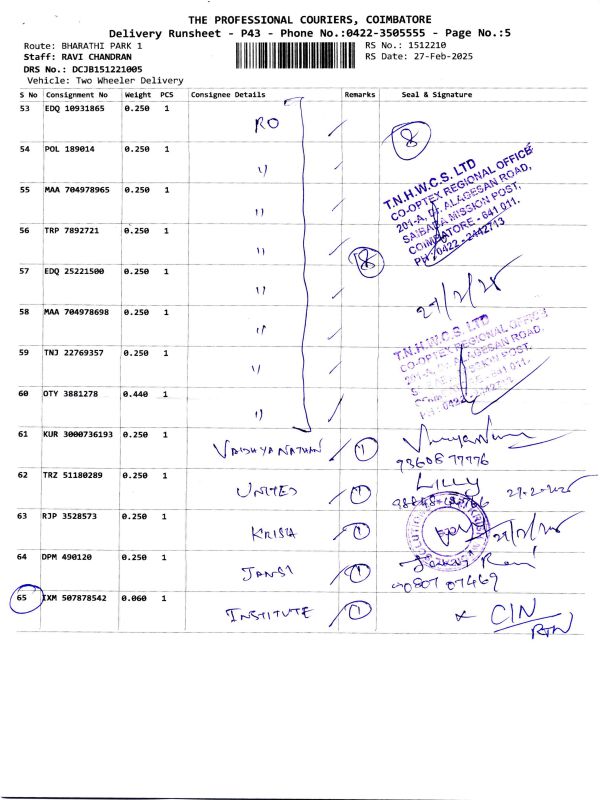 THE PROFESSIONAL COURIERS, COIMBATORE
Delivery Runsheet - P43 - Phone No.:0422-3505555 - Page No.:5
Route: BHARATHI PARK 1 RS No.: 1512210
Staff: RAVI CHANDRAN RS Date: 27-Feb-2025
DRS No.: DCJB151221005
Vehicle: Two Wheeler Delivery
S No Consignment No Weight PCS Consignee Details Remarks Seal & Signature
53 EDQ 10931865 0.250 1 RO 8
54 POL 189014 0.250 1 "
T.N.H.W.C.S. LTD
CO-OPTEX REGIONAL OFFICE
201-A, Dr. ALAGESAN ROAD,
SAIBABA MISSION POST,
COIMBATORE - 641 011.
PH : 0422 - 2442713
55 MAA 704978965 0.250 1 "
56 TRP 7892721 0.250 1 " 8
57 EDQ 25221500 0.250 1 " 27/2/25
58 MAA 704978698 0.250 1 "
T.N.H.W.C.S. LTD
CO-OPTEX REGIONAL OFFICE
59 TNJ 22769357 0.250 1 "
60 OTY 3881278 0.440 1 "
61 KUR 3000736193 0.250 1 VAIDHYANATHAN 1
9360877776
62 TRZ 51180289 0.250 1 UNITED 1 LILLY 27-2-2025
63 RJP 3528573 0.250 1 KRISHA 1 27/2/25
64 DPM 490120 0.250 1 JANSI 1
65 IXM 507878542 0.060 1 INSTITUTE 1 x CIN
RTN